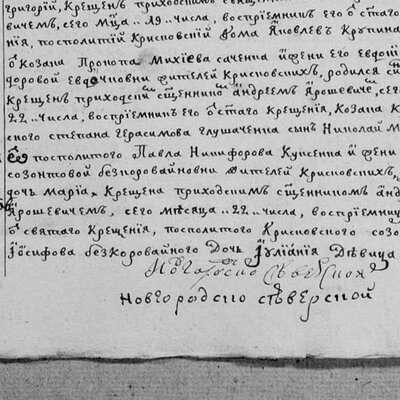 григорий, крещен приходским священни
вичем, сего мца .. 19 .. числа, восприемник его ѿ стаго
ния, посполитий Крисковский Фома Яковлев Крупина
ѿ козака Прокопа Михіева сина и жени его Евдокі
доровой жителей Крисковских, родился си
крещен приходским сщенником андреем Ярошевиче, сег
.. 22 .. числа, восприемник его ѿ стаго крещения, козака к
ского стефана герасимова глушаченка сын Николай м
ѿ посполитого Павла Никифорова Куксенка и жени
созонтовой безпоровайновни жителей Крисковских,
дочь мариа, крещена приходским сщенником анд
Ярошевичем, сего месяца .. 22 .. числа, восприемниц
ѿ святаго крещения, посполитого Крисковского созо
Іосифова безкоровайного дочь Іулианіа девица
Новгородско северской